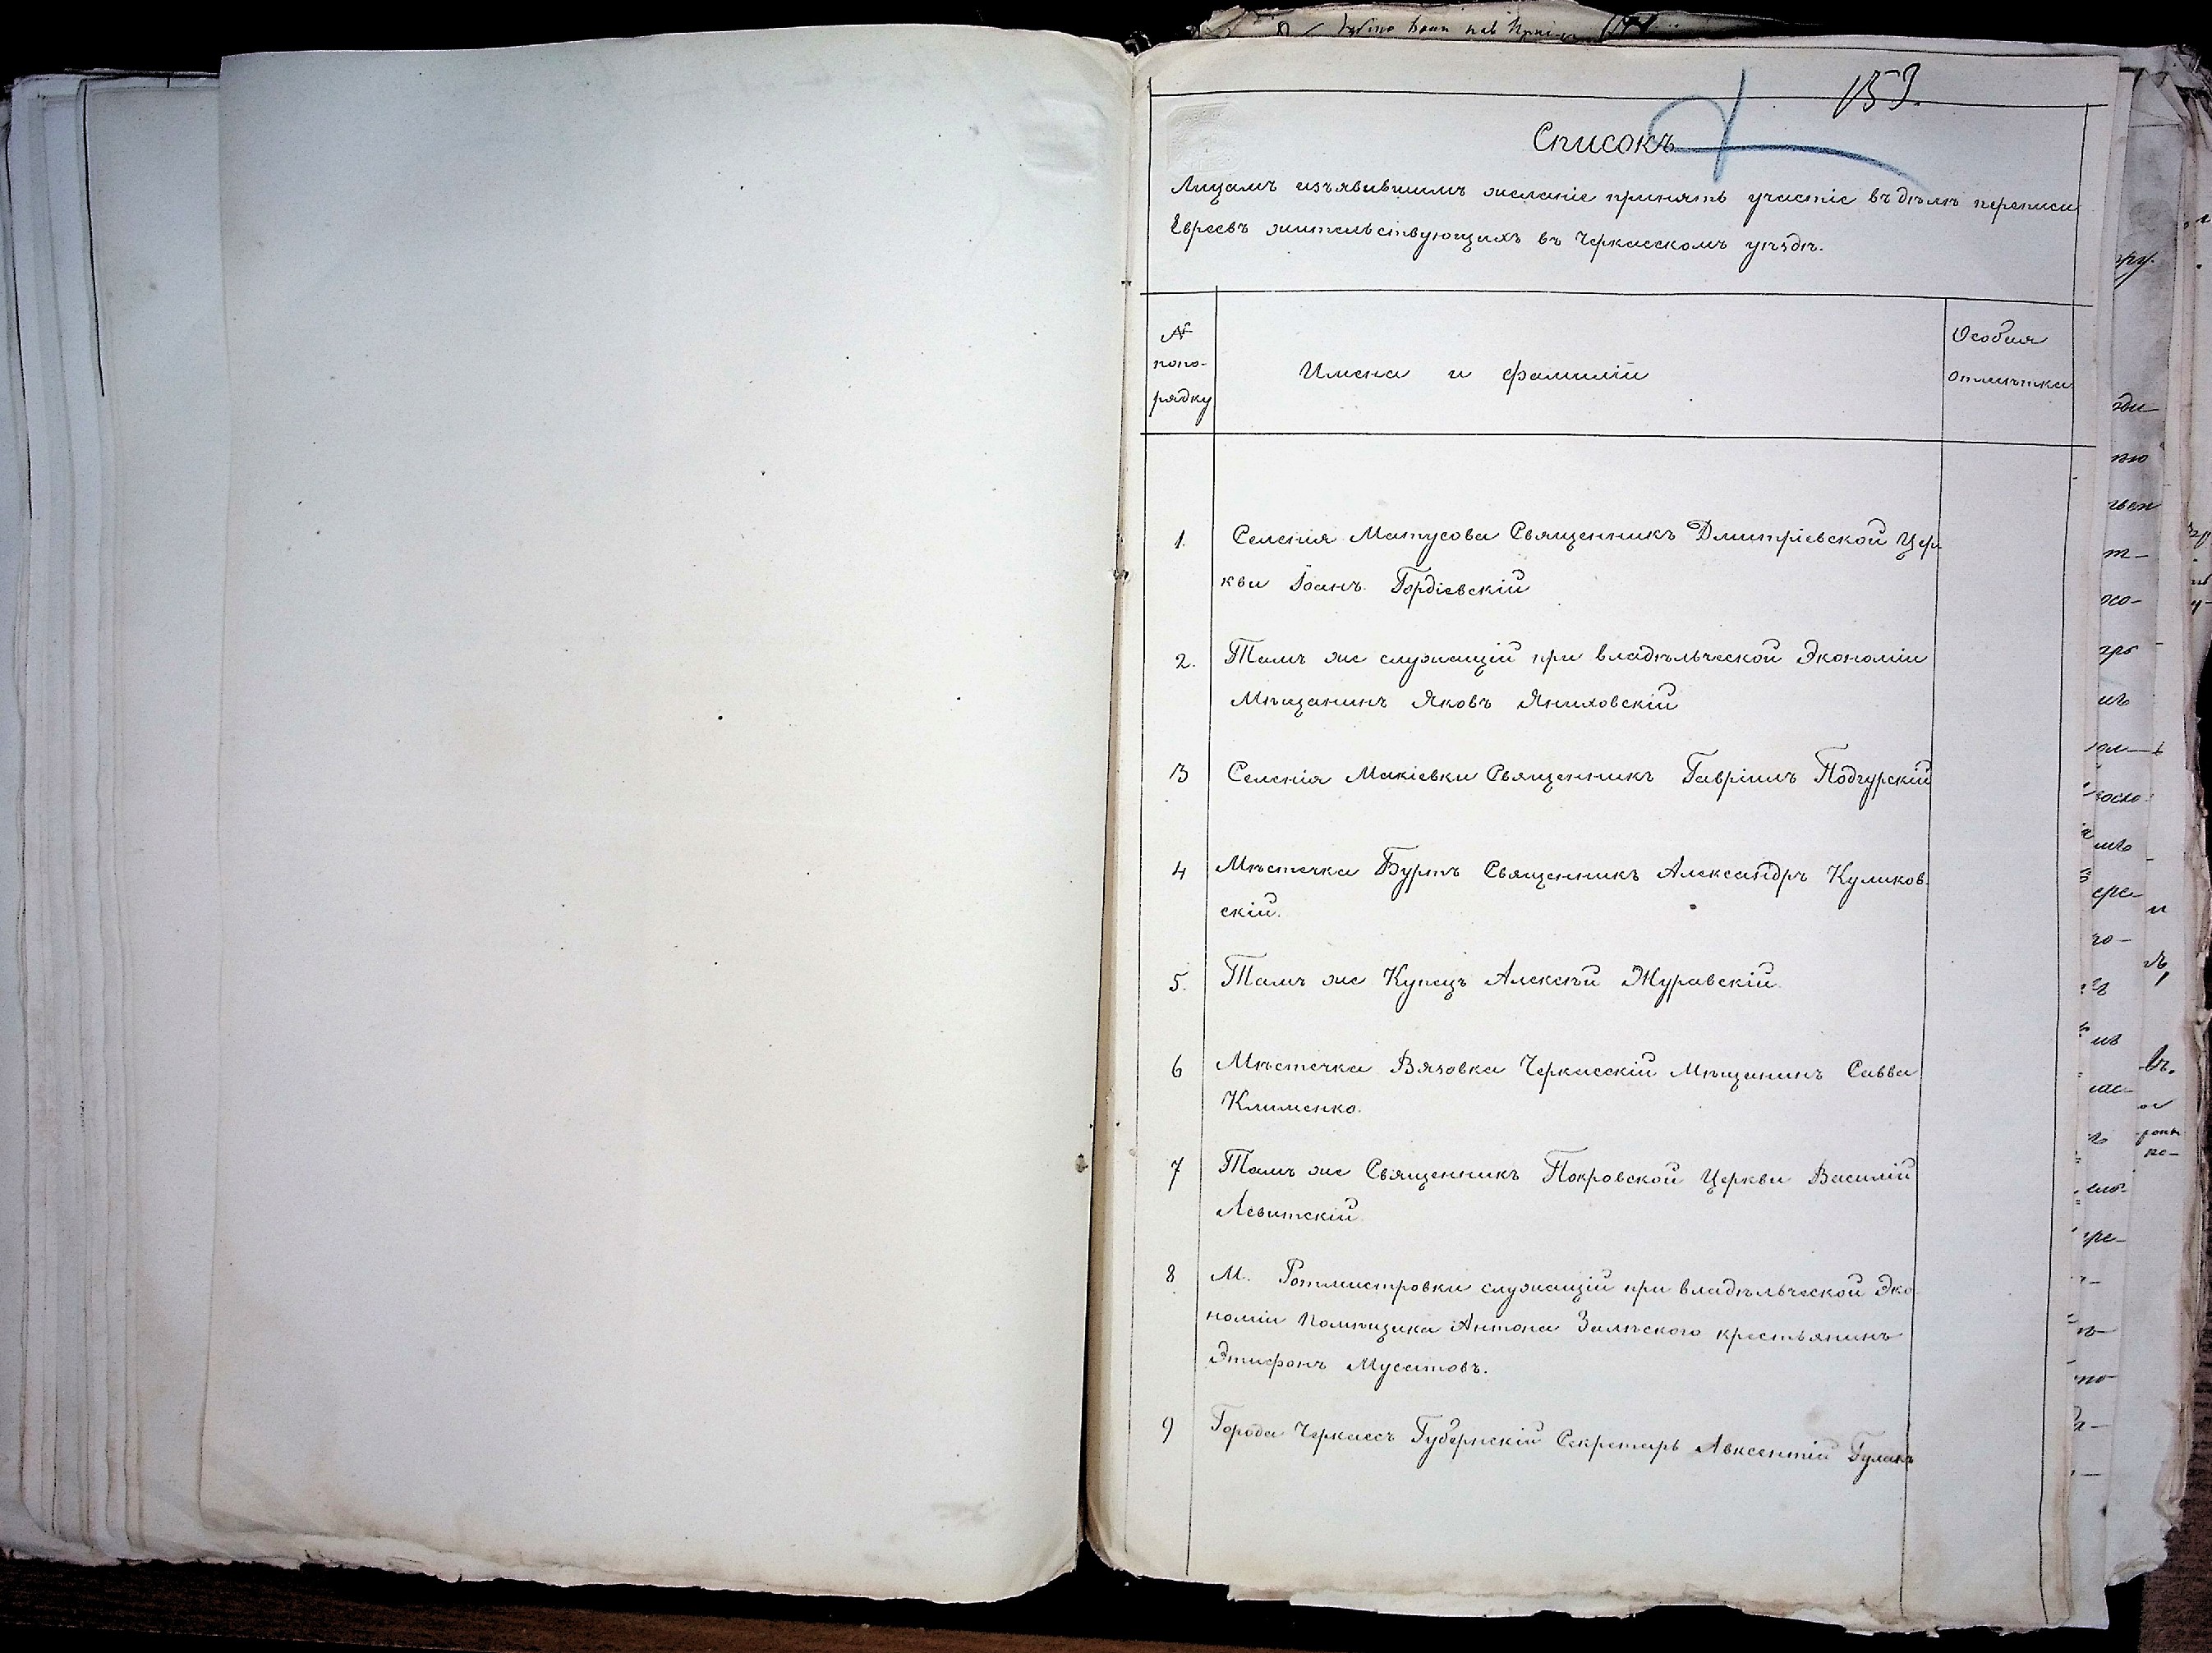 153.
Списокъ
Лицамъ изъявившимъ желаніе принять участіе въ дѣлѣ переписи
Евреевъ жительствующихъ въ Черкасскомъ уѣздѣ.
№
попо-
рядку
Имена и фамиліи
Особая
отмѣтка
1. Селенія Матусова Священникъ Дмитріевской Цер
кви Іоанъ Гордіевскій
2. Тамъ же служащій при владѣльческой Экономіи
Мѣщанинъ Яковъ Яниховскій
3 Селенія Макіевки Священникъ Гавріилъ Подгурскій
4 Мѣстечка Буртъ Священникъ Александръ Куликов
скій.
5. Тамъ же Купецъ Алексѣй Журавскій
6 Мѣстечка Вязовка Черкасскій Мѣщанинъ Савва
Клименко.
7 Тамъ же Священникъ Покровской Церкви Василій
Левитскій
8 М. Ротмистровки служащій при владѣльческой Эко
номіи Помѣщика Антона Залѣского крестьянинъ
Этифонъ Муситовъ.
9 Города Черкассъ Губернскій Секретарь Авксентій Гулакъ